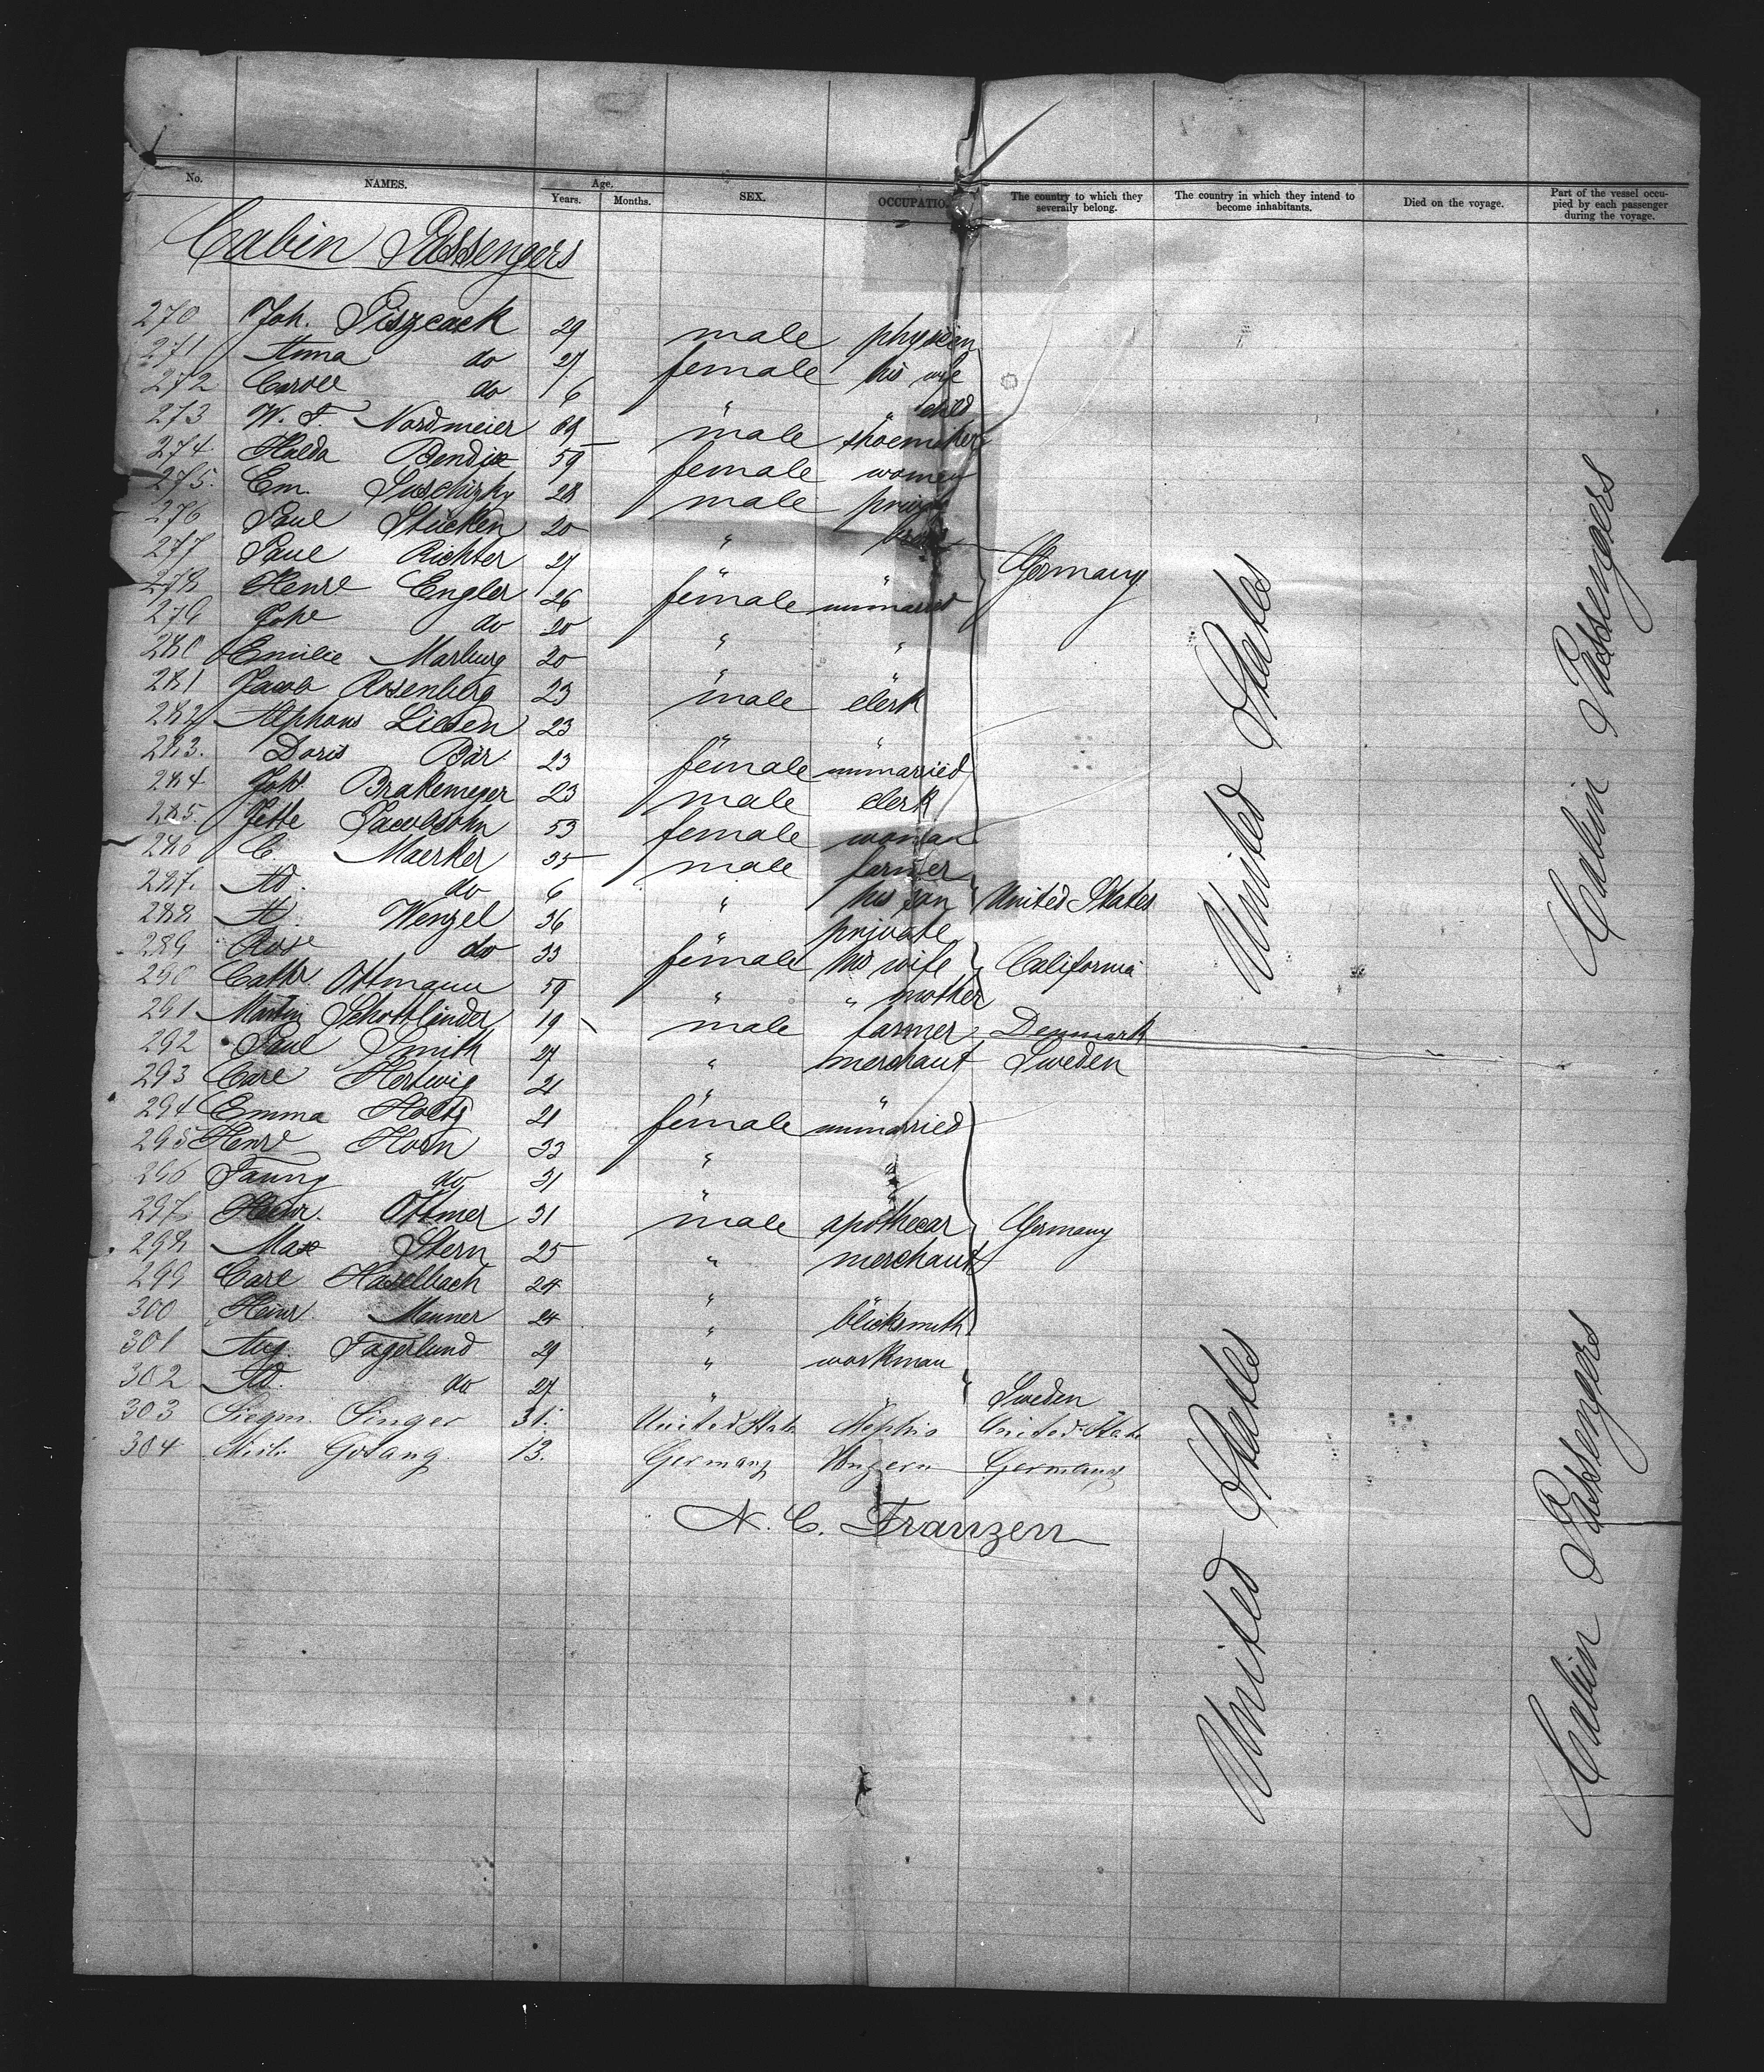 No. NAMES. Age. Years. Months. SEX. OCCUPATIO The country to which they severally belong. The country in which they intend to become inhabitants. Died on the voyage. Part of the vessel occupied by each passenger during the voyage.
Cabin Passengers
270 Joh. 29 male
271 Anna do 27 female his wife
272 do 6 " " child
273 W. F. Nordmeier male shoemaker
274 Bendix 59 female women
275. Em. 28 male
276 Paul Stücken 20 "
277 Paul Richter 27 " "
278 Henre Engler 26 female unmarried Germany
279 do 20 " "
280 Emilie Marburg 20 " "
281 Jacob Rosenberg 23 male clerk
282 Alphons Liesen 23 " "
283. Doris Bär 23 female unmarried
284 Joh. Brakemeyer 23 male clerk
285. Jette Jacobsohn 53 female woman
286 C. Maerker 35 male farmer
287. Ad. do 6 " his son United States
288 A. Wenzel 36 " private
289 Rose do 33 female his wife California
290 Cathr. Ottmann 59 " " mother
291 Martin Schottlinder 19 male farmer Denmark
292 Paul Smith 27 " merchant Sweden
293 Carl Hertwig 21 " "
294 Emma Holtz 21 female unmarried
295 Henre Horn 33 " "
296 Fanny do 31 "
297 Heinr. Ottmer 31 male apothecar Germany
298 Max Stern 25 " merchant
299 Carl Haselbach 24 " "
300 Heinr. Menner 24 " blicksmith
301 Aug. Fagerlund 29 " workman
302 Ad. do 27 " " Sweden
303 Siegm. Singer 31. United State United State
304 13. Germany Ungern Germany
N. C. Franzen
United States
United States
Cabin Passengers
Cabin Passengers